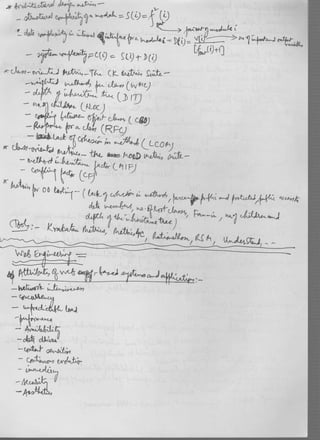 * Architectural design metrics -
- structural complexity of a module = S(i) = f²out(i)
→ fan out of module i
* data complexity in internal interface for a module i = D(i) = v(i) / [fout(i)+1] → no of input and output variables
- system complexity = C(i) = S(i) + D(i)
* class-oriented Metrics - The CK Metrics Suite -
- weighted methods per class (WMC)
- depth of inheritance tree (DIT)
- no. of children (NOC)
- coupling between object classes (CBO)
- Response for a class (RFC)
- Lack of cohesion in method (LCOM)
* Class-oriented metrics - the MOOD metrics suite -
- method inheritance factor (MIF)
- coupling factor (CF)
* Metrics for OO testing - (lack of cohesion in methods, percentage public and protected, public access to
data members, no. of root classes, Fan-in, no. of children and
depth of the inheritance tree)
(Tools:- Krakatau Metrics, Metrics4C, Rationalrose, RSM, Understand, - -
Web Engineering
Attributes of web-based systems and applications:-
- network intensiveness
- concurrency
- unpredictable load
- performance
- Availability
- data driven
- content sensitive
- continuous evolution
- immediacy
- security
- Aesthetics